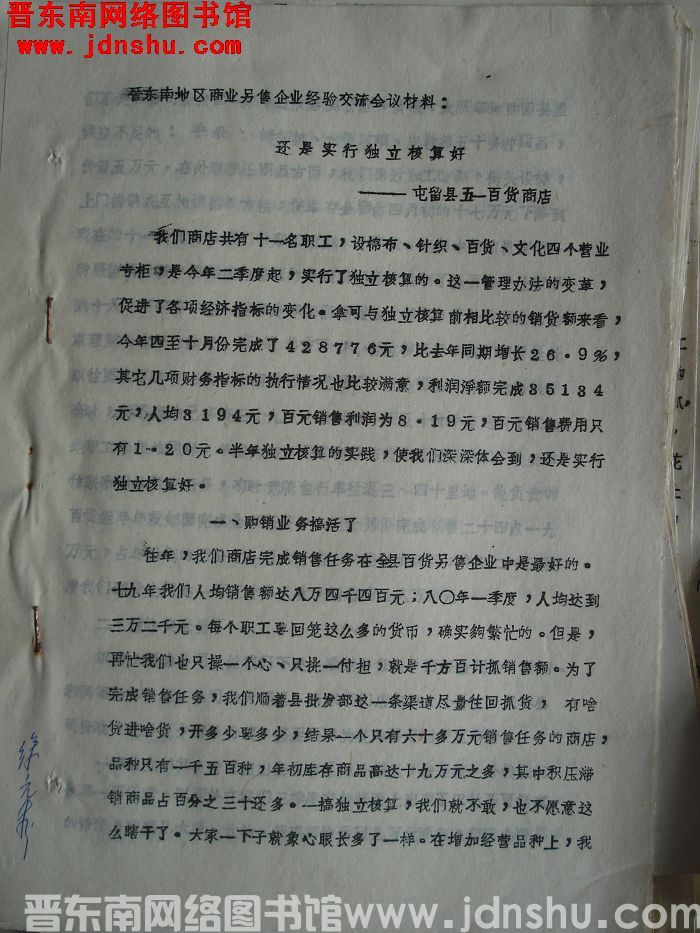 晋东南网络图书馆
www.jdnshu.com
晋东南地区商业另售企业经验交流会议材料：
还是实行独立核算好
——屯留县五一百货商店
我们商店共有十一名职工，设棉布、针织、百货、文化四个营业
专柜，是今年二季度起，实行了独立核算的。这一管理办法的变革，
促进了各项经济指标的变化。拿可与独立核算前相比较的销货额来看，
今年四至十月份完成了428776元，比去年同期增长26.9%，
其它几项财务指标的执行情况也比较满意，利润淨额完成35134
元，人均3194元，百元销售利润为8.19元，百元销售费用只
有1.20元。半年独立核算的实践，使我们深深体会到，还是实行
独立核算好。
一、购销业务搞活了
往年，我们商店完成销售任务在全县百货另售企业中是最好的。
七九年我们人均销售额达八万四千四百元；八〇年一季度，人均达到
三万二千元。每个职工要回笼这么多的货币，确实夠繁忙的。但是，
再忙我们也只操一个心、只挑一付担，就是千方百计抓销售额。为了
完成销售任务，我们顺着县批发部这一条渠道尽量往回抓货， 有啥
货进啥货，开多少要多少，结果一个只有六十多万元销售任务的商店，
品种只有一千五百种，年初库存商品高达十九万元之多，其中积压滞
销商品占百分之三十还多。一搞独立核算，我们就不敢，也不愿意这
么瞎干了。大家一下子就象心眼长多了一样。在增加经营品种上，我
晋东南网络图书馆www.jdnshu.com